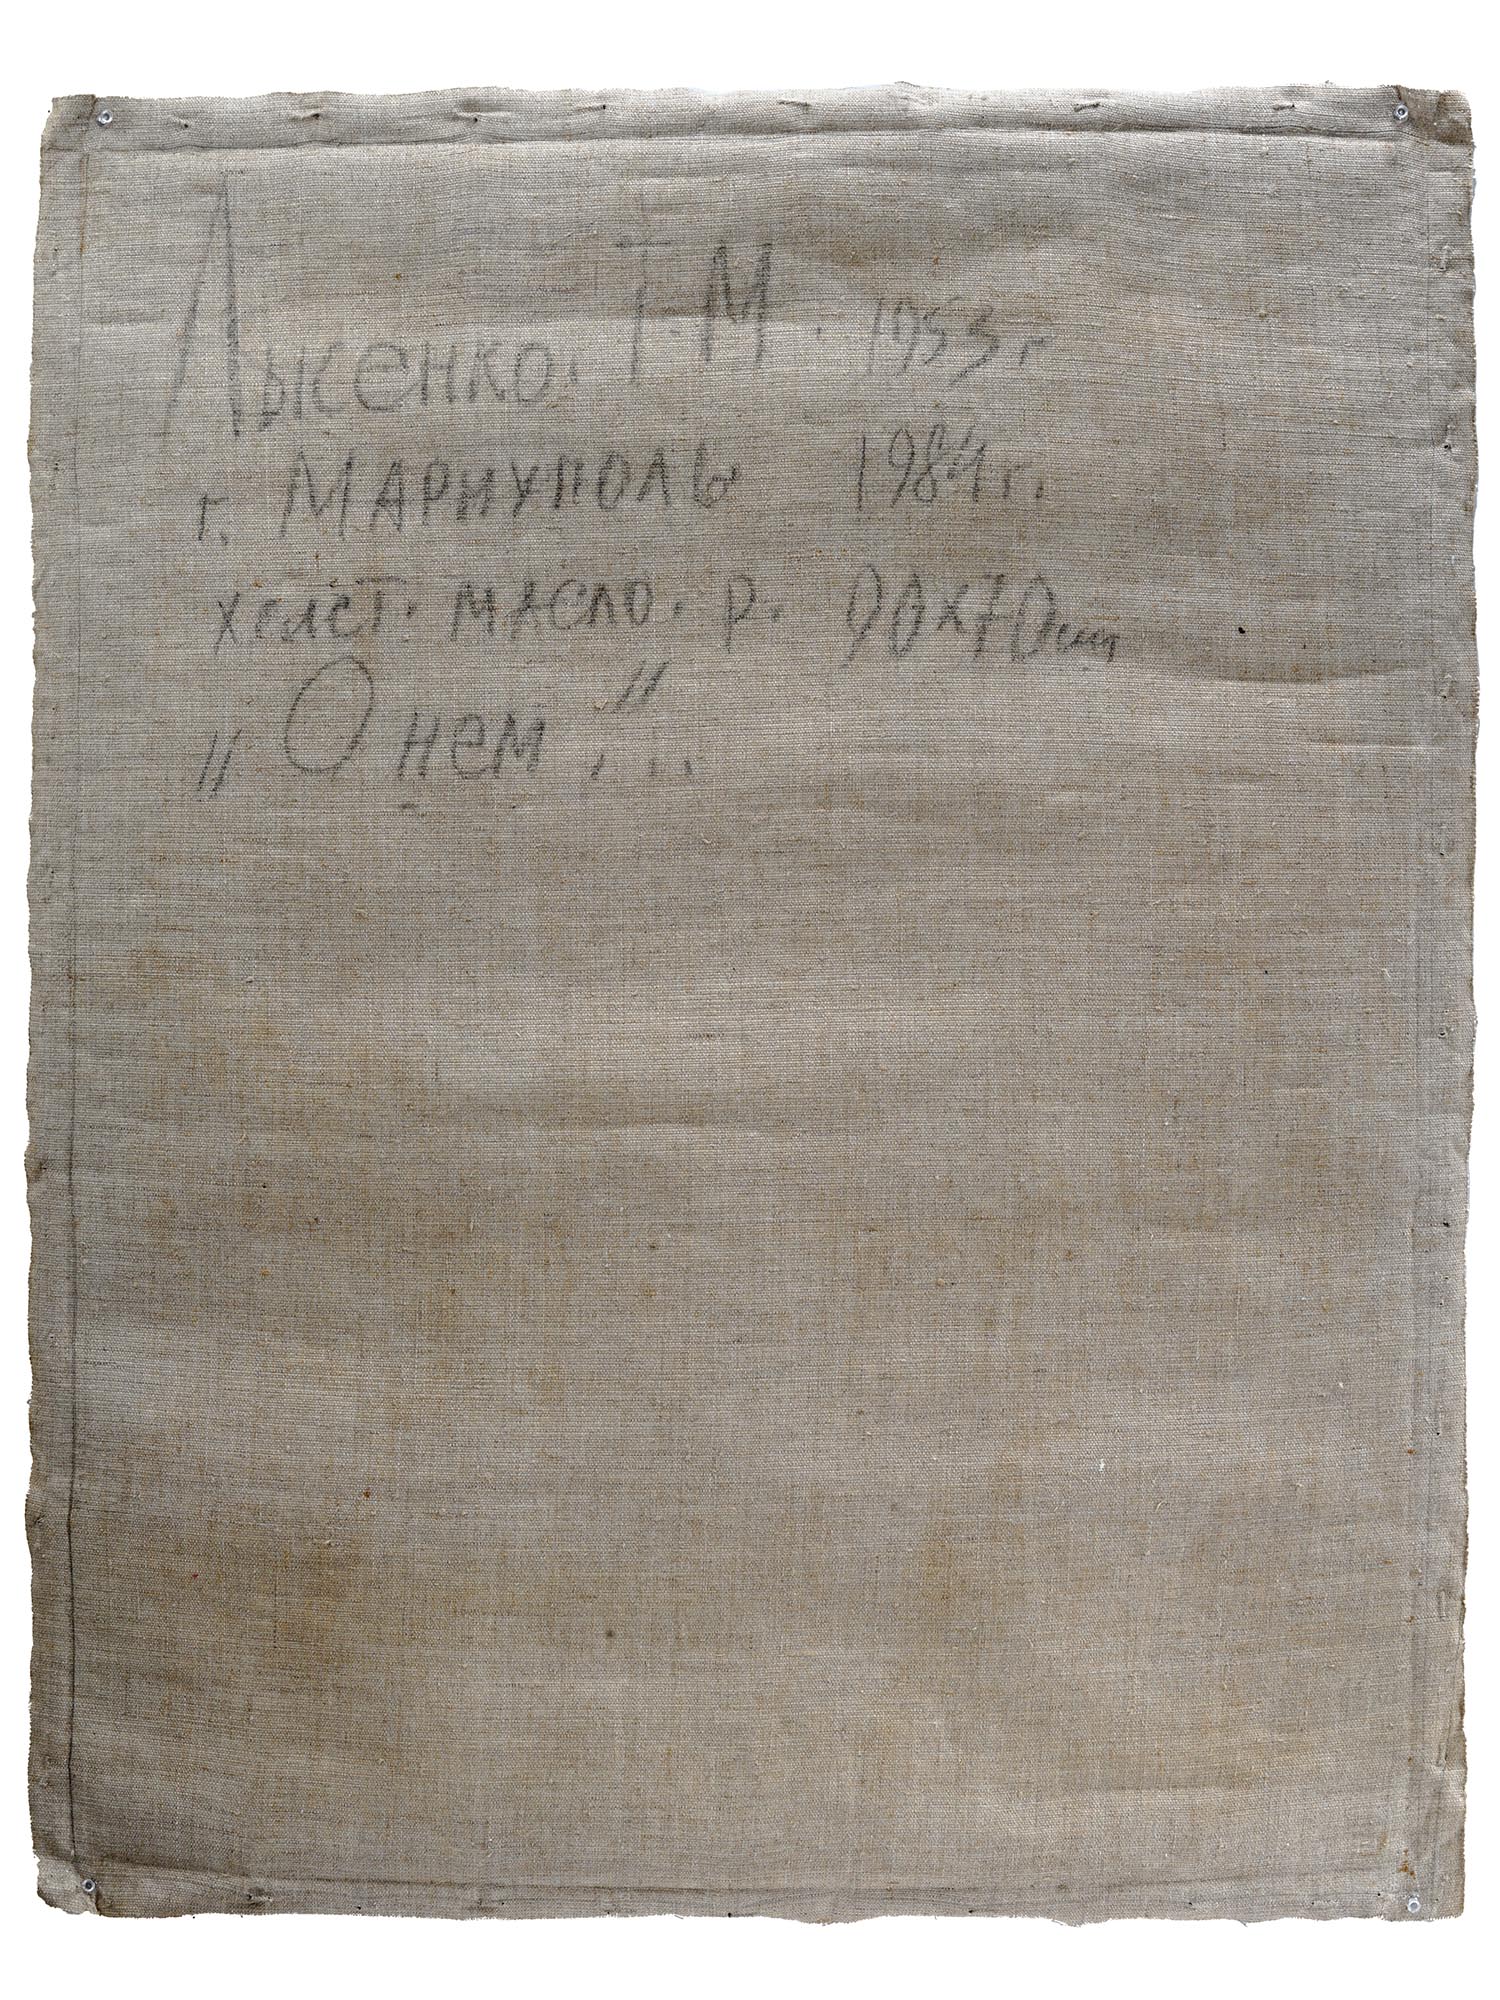 Лысенко. Т. М. 1953 г
г. Мариуполь 1984 г.
холст. масло. р. 90х70 cm
„О нем..."